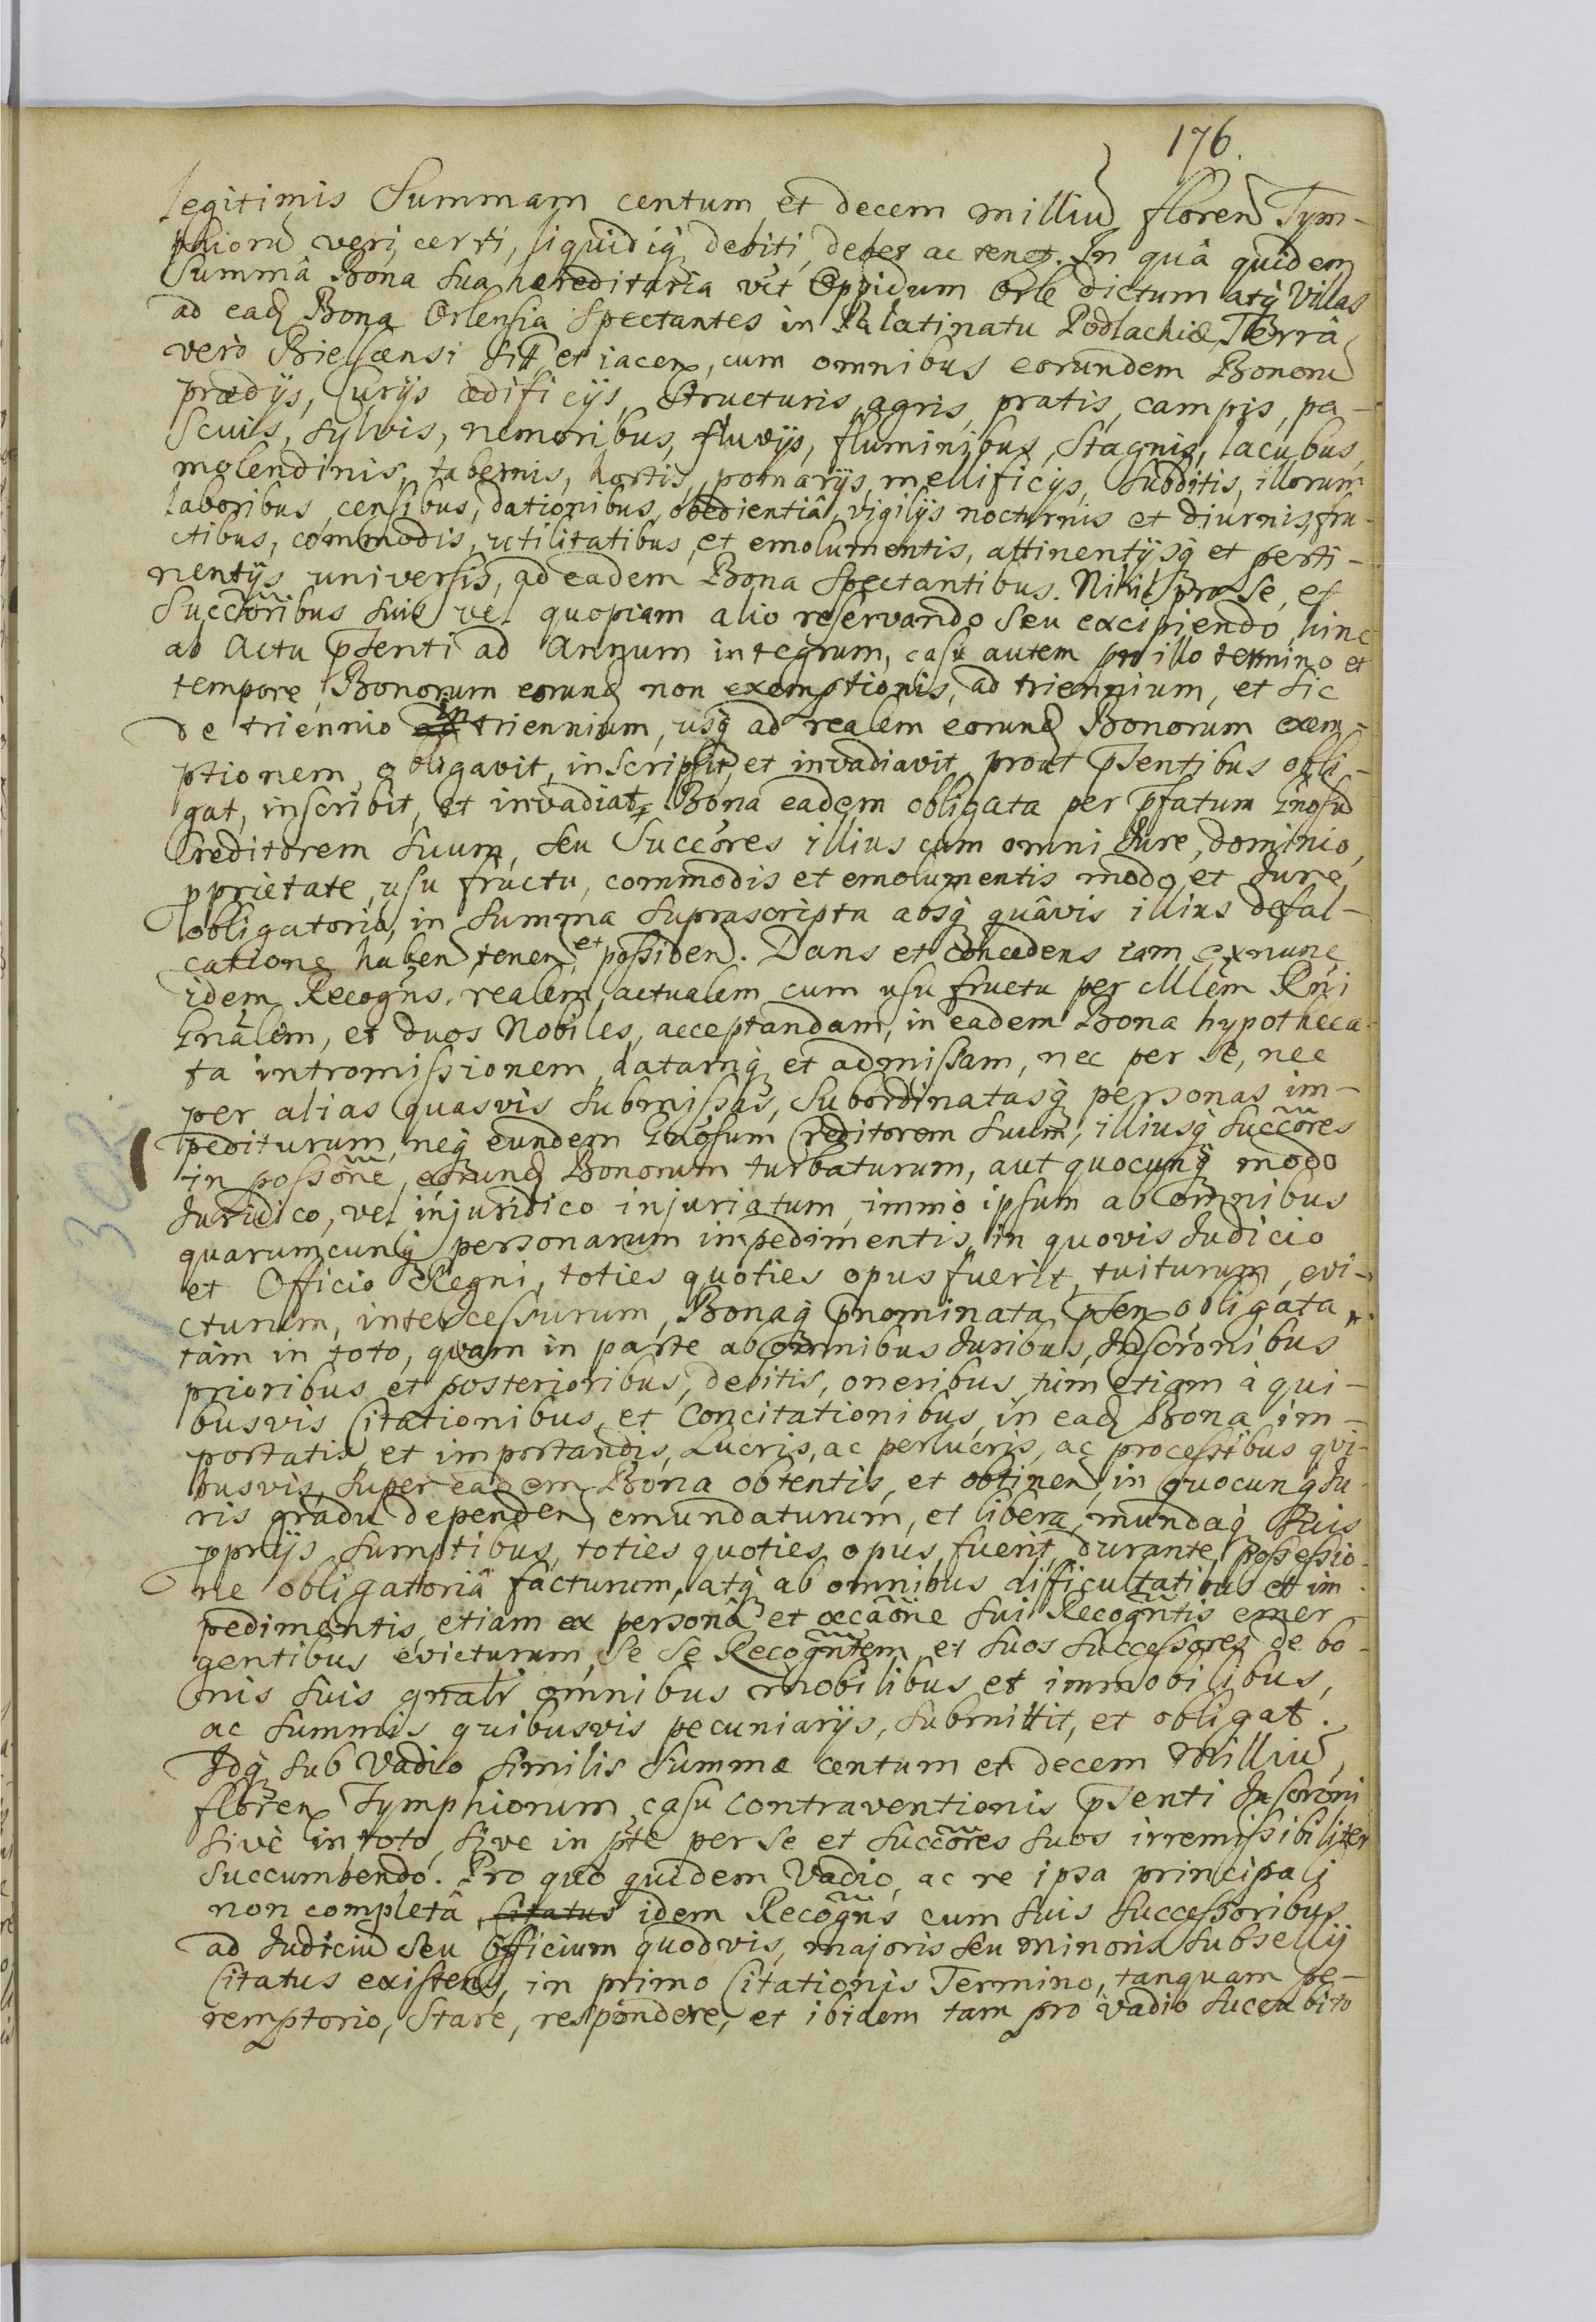 176.
legitimis Summam centum et decem milliu floren Tym-
phioru veri, certi, liquidiq debiti, debet ac tenet. In quâ quidem
Summâ Bona sua haereditaria vit Oppidum Orle dictum atq Villas
ad ead Bona Orlensia Spectantes in Palatinatu Podlachiæ, Terrâ
verò Bielscensi sitt et iacen, cum omnibus eorundem Bonoru
prædijs, Curijs ædificijs, Structuris, agris, pratis, campis, pa-
scuis, sylvis, nemoribus, fluvijs, fluminibus, Stagnis, lacubus,
molendinis, tabernis, hortis, pomarijs, mellificijs, subditis, illorum
laboribus, censibus, dationibus, obedientiâ, vigilijs nocturnis et diurnis, fru-
ctibus, commodis, utilitatibus, et emolumentis, attinentijsq et perti-
nentijs universis, ad eadem Bona Spectantibus. Nihil pro se, et
Succõribus suis vel quopiam alio reservando seu excipiendo, hinc
ab Actu pñti ad Annum integrum, casu autem pro illo termino et
tempore, Bonorum eorund non exemptionis, ad triennium, et sic
de triennio in triennium, usq ad realem eorund Bonorum exem-
ptionem, obligavit, inscripsit, et invadiavit, prout p̃sentibus obli-
gat, inscribit, et invadiat. Bona eadem obligata per p̃fatum Gñosu
Creditorem suum, seu Succõres illius cum omni Jure, dominio,
pprietate, usu fructu, commodis et emolumentis modo et Jure
obligatorio, in summa suprascripta absq quâvis illius defal-
catione haben, tenen, et possiden. Dans et Concedens iam ex nunc
idem Recogns. realem, actualem cum usu fructu per Mlem Rñi
Gñalem, et duos Nobiles, acceptandam, in eadem Bona hypotheca-
ta intromissionem, datamq et admissam, nec per se, nec
per alias quasvis submissas, subordinatasq personas im-
pediturum, neq eundem Gñosum Creditorem suum, illiusq succõres
in possõne, eorund Bonorum turbaturum, aut quocunq modo
Juridico, vel injuridico injuriatum, immò ipsum ab omnibus
quarumcunq personarum impedimentis, in quovis Judicio
et Officio Regni, toties quoties opus fuerit, tuiturum, evi-
cturum, intercessurum, Bonaq p̃nominata, p̃sen obligata,
tàm in toto, quam in parte ab omnibus Juribus, Inscrõnibus
prioribus et posterioribus, debitis, oneribus, tùm etiam à qui-
busvis Citationibus, et Concitationibus, in ead Bona im-
portatis et importandis, Lucris, ac perlucris, ac processibus qui-
busvis, super eadem Bona obtentis, et obtinen, in quocunq Ju-
ris gradu dependen, emundaturum, et libera, mundaq suis
pprijs sumptibus, toties quoties opus fuerit, durante possessio-
ne obligatoriâ facturum, atq ab omnibus difficultatibus et im-
pedimentis, etiam ex personâ et occãõne sui Recogñtis emer
gentibus evicturum, se se Recogñtem, et suos successores de bo-
nis suis gñalr omnibus mobilibus et immobilibus,
ac summis quibusvis pecuniarijs, submittit, et obligat.
Idq sub Vadio similis summæ centum et decem Milliu,
floren Tymphiorum, casu contraventionis p̃senti Inscrõni
sivè in toto, sive in pte per se et succõres suos irremissibiliter
succumbendo. Pro quo quidem Vadio, ac re ipsa principali
non completâ, citatus idem Recogñs cum suis successoribus
ad Judiciu seu Officium quodvis, majoris seu minoris subsellij
Citatus existens, in primo Citationis Termino, tanquam pe-
remptorio, Stare, respondere, et ibidem tam pro vadio succubito